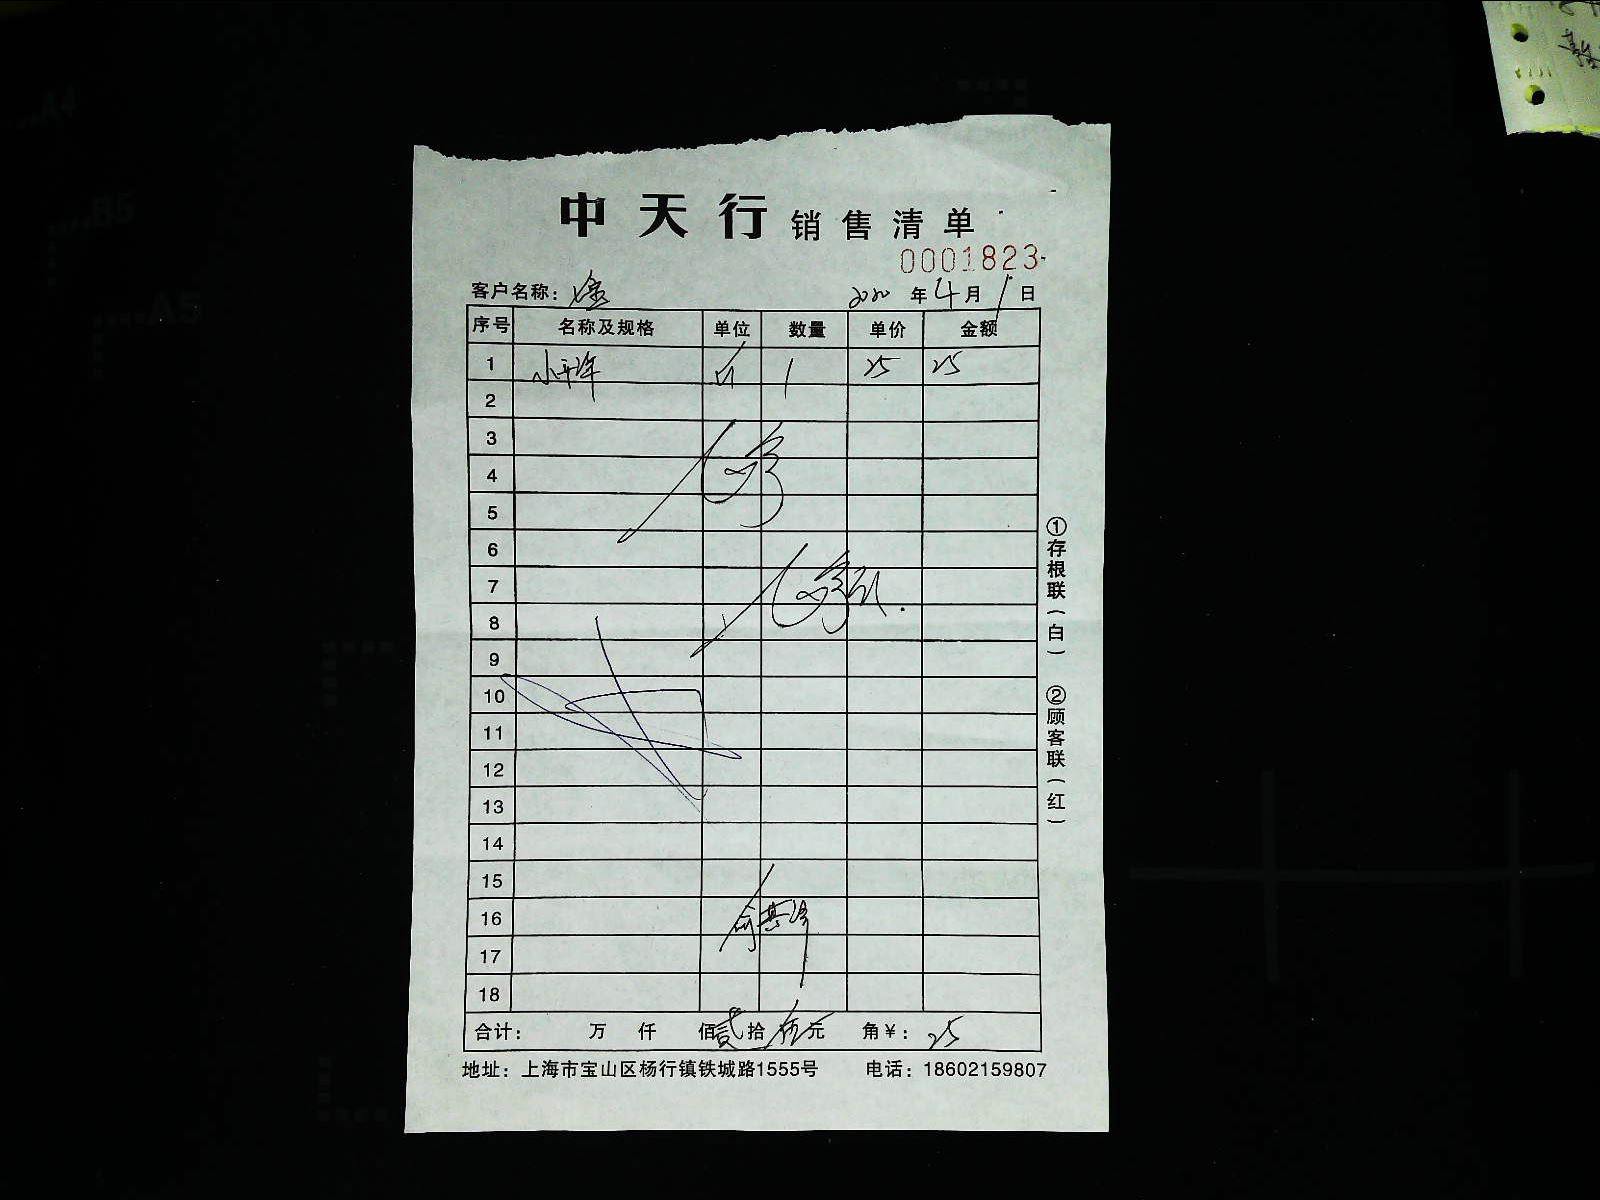 中天行 销售清单
0001823
客户名称：
2020 年 4 月 1 日
序号 名称及规格 单位 数量 单价 金额
1 1 25 25
2
3
4
5
6
7
8
9
10
11
12
13
14
15
16
17
18
合计： 万 仟 佰 贰拾伍元 角￥：25
地址：上海市宝山区杨行镇铁城路1555号 电话：18602159807
①存根联（白）
②顾客联（红）